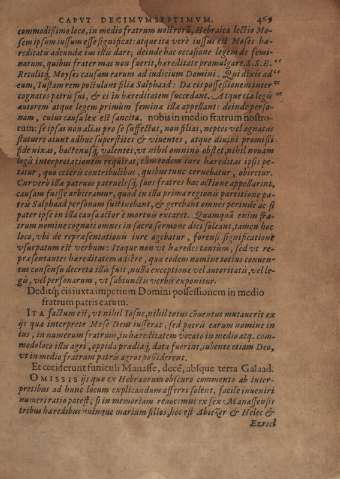 CAPVT DECIMVMSEPTIMVM. 469
commodissimo loco, in medio fratrum nostrorũ, Hebraica lectio Mosem
ipsum iussum esse significat: atque ita vero iussus est Moses hæreditatu
adeundæ ius illis dare, deinde hac occasione legem de feminarum,
quibus frater mas non fuerit, hæreditate promulgare. S. S. E.
Resulitq́ Moyses causam earum ad iudicium Domini. Qui dixit ad
eum, Iustam rem postulant filiæ Salphaad: Da eis possessionem inter
cognatos patris sui, & ei in hæreditatem succedant. Atque ita legis
autorem atque legem primùm femina illa appellant: deinde personam,
cuius causa lex est sancita. nobis in medio fratrum nostrorum:
se ipsas non alias pro se suffectas, non filias, neptes vel ognatas
futuras aiunt adhuc superstites & viventes, atque diuini promissi
fide nixas, hactenusq́ valentes, vt nihil omnino obstet, nihil nouam
legis interpretationem requirat, cùm
tatur, quo ceteris contribulibus, quibus tunc ceruebatur, obiretur.
Cur verò illa patruos patruelésq́, suos fratres hac actione appellarint,
causam fuisse arbitramur, quod in illa prima regionis partitione patris
Salphaad personam sustinebant, & gerebant omnes perinde ac si
pater ipse in illa causa actor è mortuis exstaret. Quamquã enim fratrum
nomine cognatos omnes in sacra sermone dici soleant, tamen hoc
loco, vbi de repræsentationis iure agebatur, forensi significatione
vsurpatum est verbum: Itaque non vt hæredes tantùm, sed vt repræsentantes
hæreditatem adiere, quæ eodem nomine totius conuentus
consensu decreta illis fuit, nulla exceptione vel autoritatis, vel legis,
vel personarum, vt subiunctis verbis exponitur.
Deditq́; eis iuxta imperium Domini possessionem in medio
fratrum patris earum.
ITA factum est, vt nihil Iosue, nihil totus cõuentus mutauerit ex
ijs qua interprete Mose Deus iusserat, sed patris earum nomine in
ius, in numerum fratrum, in hæreditatem vocatæ in medio atq. commodo
loco illis agri, optata prædiaq́, data fuerint, iubente etiam Deo,
vt in medio fratrum patris agros possiderent.
Et ceciderunt funiculi Manasse, decẽ, absque terra Galaad.
OMISSIS ijs quæ ex Hebræorum obscuro commento ab interpretibus
ad hunc locum explicandum afferri solent, facile inueniri
numeri ratio potest, si in memoriam reuocimus ex sex Manassensis
tribus hæredibus quinque marium filios, hoc est Abiezer & Helec &
Esriel